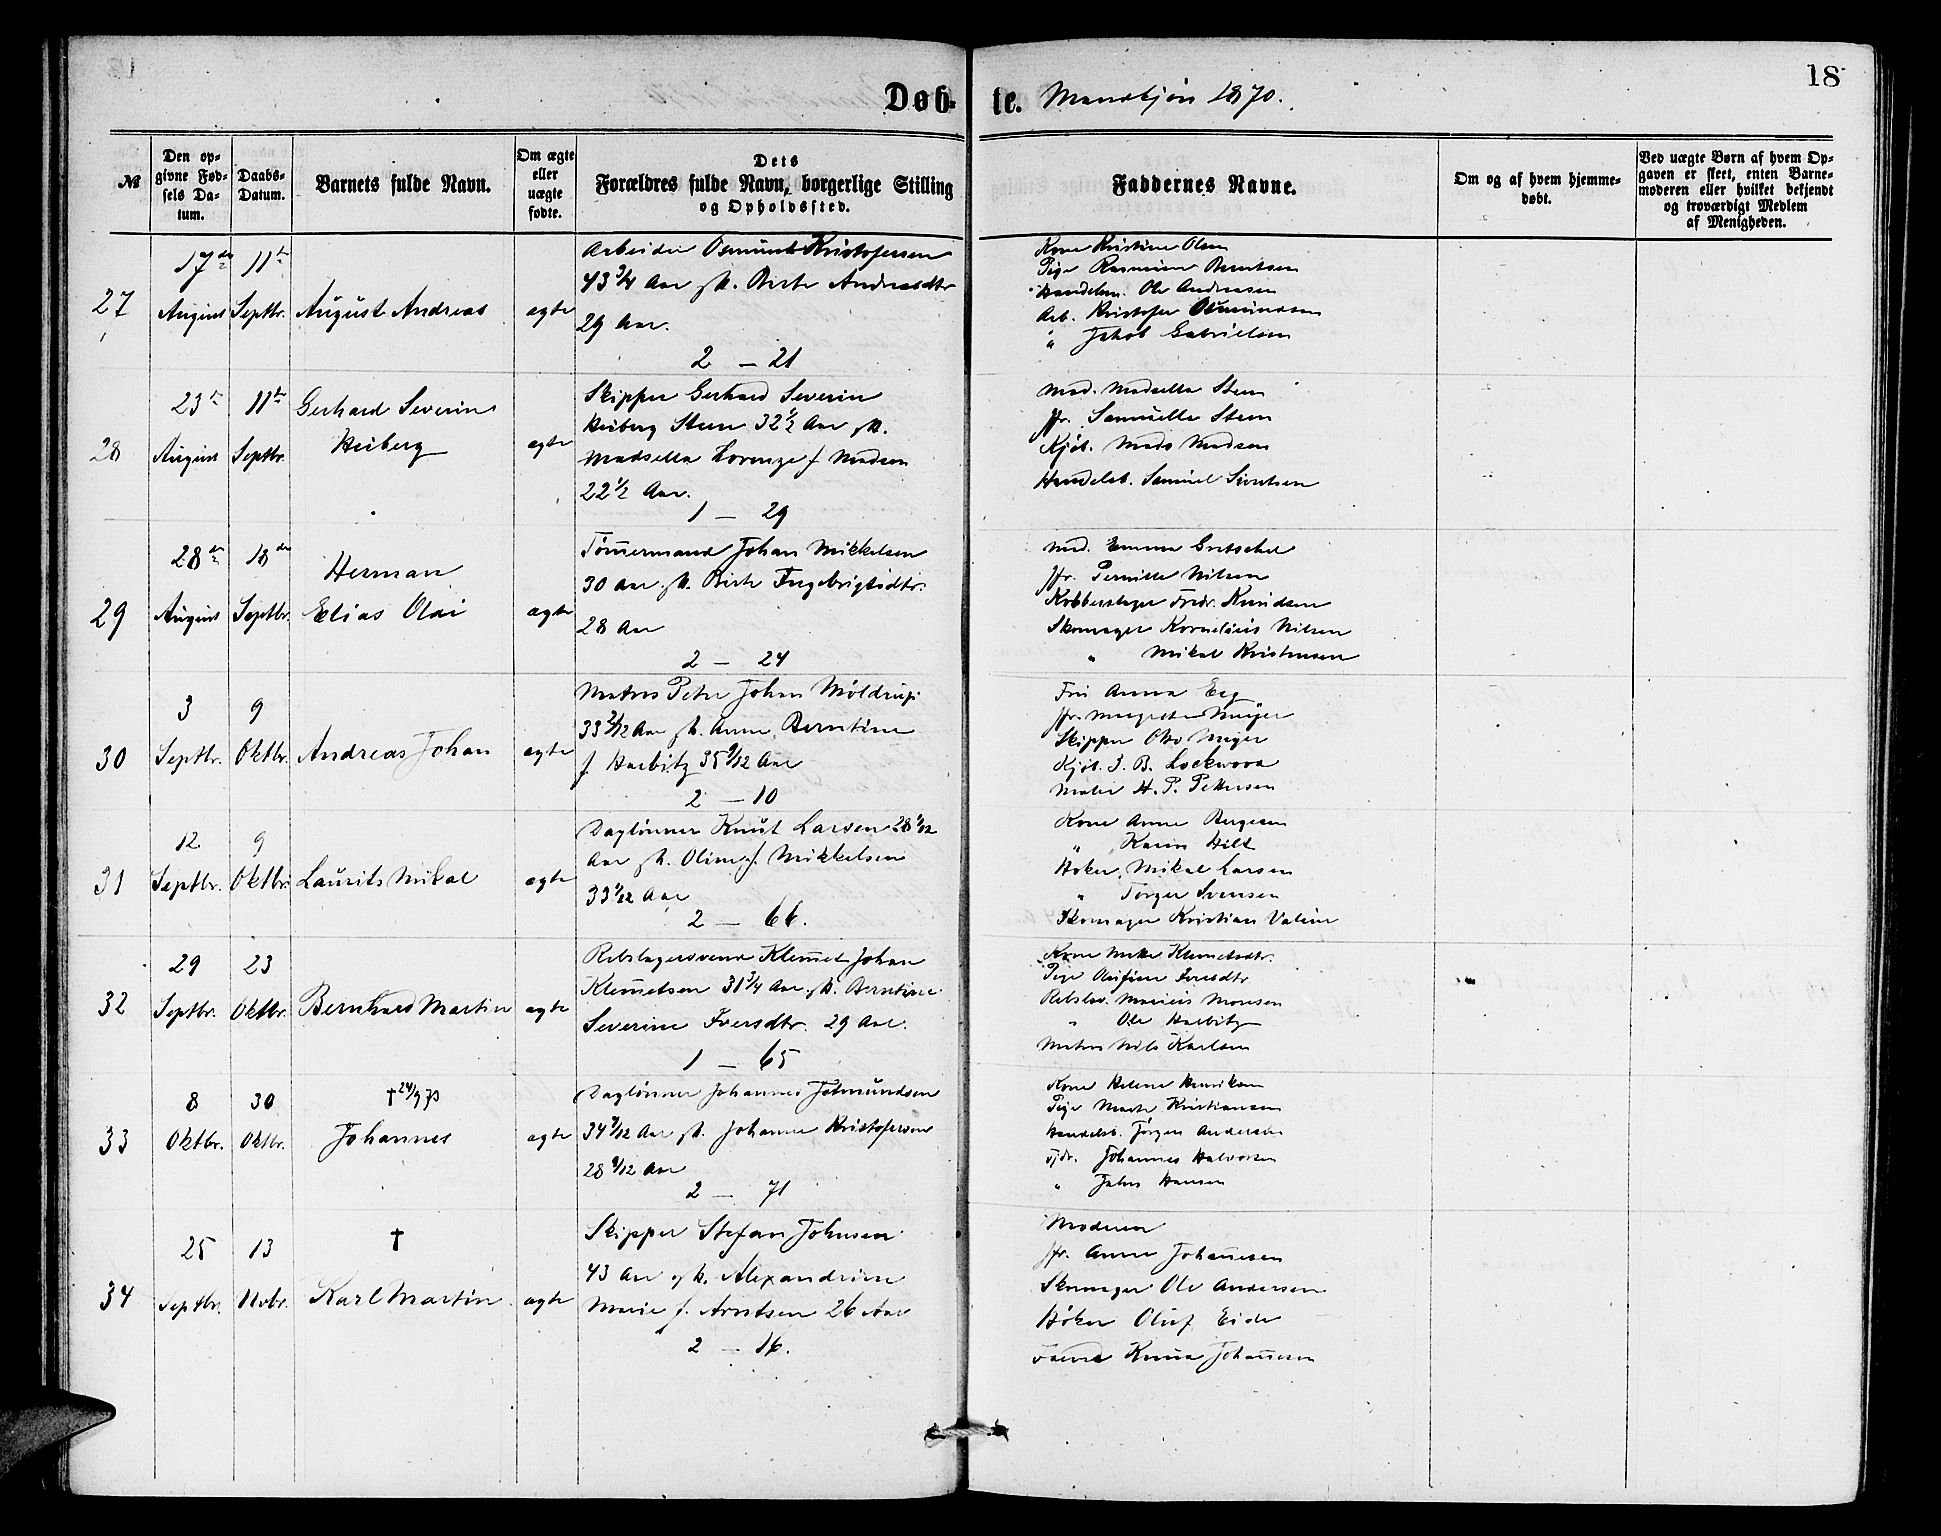 18
Døb-te. Mandkjøn 1870.
№
Den op-
givne Fød-
sels Da-
tum.
Daabs-
Datum.
Barnets fulde Navn.
Om ægte
eller
uægte
fødte.
Dets
Forældres fulde Navn, borgerlige Stilling
og Opholdssted.
Faddernes Navne.
Om og af hvem hjemme-
døbt.
Ved uægte Børn af hvem Op-
gaven er skeet, enten Barne-
moderen eller hvilket bekjendt
og troværdigt Medlem
af Menigheden.
27
17de
August
11te
Septbr.
August Andreas
ægte
Arbeider Osmund Kristofersen
43 3/4 Aar Birte Andreasdtr
29 Aar.
2 — 21
Kone Kristine Olsen
Pige Rasmine Berntsen
Handelsm. Ole Andreasen
Arb. Kristofer Osmundsen
" Jakob Gabrielsen
28
23de
August
11te
Septbr.
Gerhard Severin
Heiberg
ægte
Skipper Gerhard Severin
Heiberg Steen 32 1/2 Aar
Madsella Lorenze f. Madsen
22 1/2 Aar.
1 — 29
Mad. Madsella Steen
Jfr. Samuelle Steen
Kjøb. Mads Madsen
Handelsb. Samuel Sivertsen
29
28de
August
18de
Septbr.
Herman
Elias Olai
ægte
Tømmermand Johan Mikkelsen
30 Aar Birte Ingebrigtsdtr.
28 Aar
2 — 24
Mad. Emma
Jfr. Pernille Nilsen
Kobberslager Fredr. Knudsen
Skomager Kornelius Nilsen
" Mikal Kristensen
30
3
Septbr.
9
Oktbr.
Andreas Johan
ægte
Matros Peter Johan Møldrup
33 2/12 Aar Anne Berntine
f. Harbitz 35 9/12 Aar
2 — 10
Fru Anna Eeg
Jfr. Margrethe Meyer
Skipper Otto Meyer
Kjøb. J. B. Lockwood
Maler H. P. Pettersen
31
12
Septbr.
9
Oktbr.
Laurits Mikal
ægte
Daglønner Knut Larsen 28 1/12
Aar Oline f. Mikkelsen
33 9/12 Aar
2 — 66.
Kone Anne Bergesen
" Karen Hilt
Høker Mikal Larsen
" Torger Svensen
Skomager Kristian Valeur
32
29
Septbr.
23
Oktbr.
Bernhard Martin
ægte
Rebslagersvend Klemet Johan
Klemetsen 31 3/4 Aar Berntine
Severine Iversdtr. 29 Aar.
1 — 65
Kone Mette Klemetsdtr.
Pige Iversdtr
Rebslsv. Marius Monsen
" Ole Harbitz
Matros Nils Karlsen
33
8
Oktbr.
30
Oktbr.
† 24/9 70
Johannes
ægte
Daglønner Johannes Jetmundsen
34 9/12 Aar Johanne Kristofersen
28 9/12 Aar
2 — 71
Kone Helene Henriksen
Pige Marte Kristiansen
Handelsb. Jørgen Andersen
Johannes Halvorsen
" Hansen
34
25
Septbr.
13
Novbr.
†
Karl Martin
ægte
Skipper Stefan Johnsen
43 Aar Alexandrine
Marie f. Arntsen 26 Aar
2 — 16.
Moderen
Jfr. Anne Johannesen
Skomager Ole Andersen
Høker Oluf Eide
Knud Johannesen